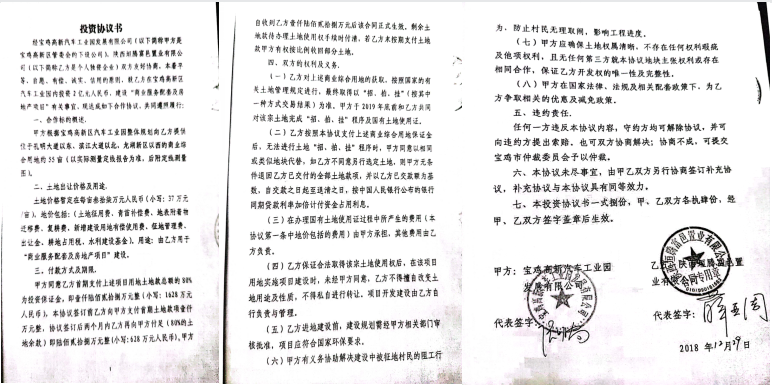 投资协议书
经宝鸡高新汽车工业园发展有限公司（以下简称甲方是
宝鸡高新区管委会的下设公司）、陕西恒腾富邑置业有限公
司（以下简称乙方是个人独资企业）双方友好协商，本着平
等、自愿、有偿、诚实、信用的原则，就乙方在宝鸡高新区
汽车工业园内投资2亿元人民币，建设"商业服务配套及房地
产项目"有关事宜，现达成如下合作协议，共同遵照履行：
一、合作标的概述。
甲方根据宝鸡高新区汽车工业园整体规划向乙方提供
位于孔明大道以东、滨江大道以北、龙湖新区以西的商业综
合用地约55亩（以实际测量定线报告为准，后附定线测量
图）。
二、土地出让价格及用途。
土地价格暂定在每亩叁拾柒万元人民币（小写：37万元
/亩），地价包括：（土地征用费、青苗补偿费、地表附着物
迁移费、复耕费、新增建设用地有偿使用费、征地管理费、
出让金、耕地占用税、水利建设基金）。用途：由乙方用于
"商业服务配套及房地产项目"建设。
三、付款方式及期限。
甲方同意乙方首期支付上述项目用地土地款总额的80%
为投资保证金，即壹仟陆佰贰拾捌万元整（小写：1628万元
人民币）。本协议签订前乙方向甲方支付首期土地款项壹仟
万元整，协议签订后两个月内乙方再向甲方付足（80%的土
地余款）即陆佰贰拾捌万元整（小写：628万元人民币）。甲方
1
自收到乙方壹仟陆佰贰拾捌万元后该合同正式生效。剩余土
地款待办理土地使用权手续时付清，若乙方未按期支付土地
款甲方有权按比例收回部分土地。
四、双方的权利及义务。
（一）乙方对上述商业综合用地的获取，按照国家的有
关土地管理规定进行，最终取得以"招、拍、挂"（按其中
一种方式交易结果）为准。甲方于2019年底前和乙方共同
对该宗土地完成"招、拍、挂"程序及国有土地使用证。
（二）乙方按照本协议支付上述商业综合用地保证金
后，无法进行土地"招、拍、挂"程序时，甲方同意以相同
或类似地块代替，如乙方不同意另行选定土地，则甲方无条
件退回乙方已交付的全部土地款项，并以乙方已交款额为基
数，自交款之日起至退清之日，按中国人民银行公布的银行
同期贷款利率加倍计付资金占用利息。
（三）在办理国有土地使用证过程中所产生的费用（本
协议第一条中地价包括的费用）由甲方承担，其他费用由乙
方负责。
（四）乙方保证合法取得该宗土地使用权后，在该项目
用地实施项目建设时，未经甲方同意，乙方不得擅自改变土
地用途及性质，不得私自进行转让。项目开发建设由乙方自
行负责与管理。
（五）乙方进地建设前，建设规划需经甲方相关部门审
核批准，项目应符合国家环保要求。
（六）甲方有义务协助解决建设中被征地村民的阻工行
为，防止村民无理取闹，影响工程进度。
（七）甲方应确保土地权属清晰，不存在任何权利瑕疵
及他项权利，且无任何第三方就本协议地块主张权利或存在
相同合作，保证乙方开发权的唯一性及完整性。
（八）甲方在国家法律、法规及相关配套政策下，为乙
方争取相关的优惠及减免政策。
五、违约责任。
任何一方违反本协议内容，守约方均可解除协议，并可
向违约方提出索赔。也可双方协商解决；协商不成，可提交
宝鸡市仲裁委员会予以仲裁。
六、本协议未尽事宜，由甲乙双方另行协商签订补充协
议，补充协议与本协议具有同等效力。
七、本投资协议书一式捌份，甲、乙双方各执肆份，经
甲、乙双方签字盖章后生效。
甲方：宝鸡高新汽车工业园
发展有限公司
代表签字：
乙方：陕西恒腾富邑置
业有限公司
代表签字：
2018年12月29日